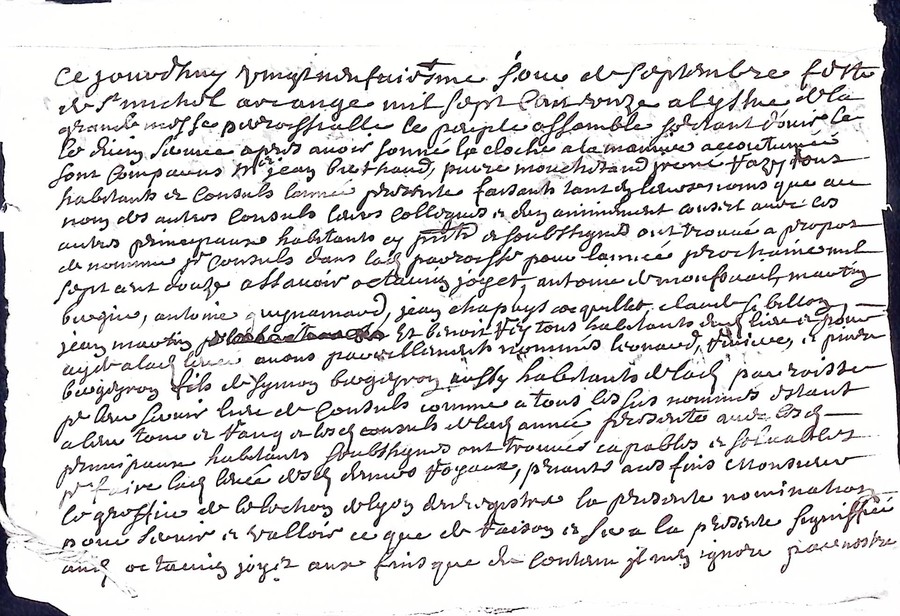 ce jourdhuy vingt neufviesme jour de septembre feste
de st michel arcange mil sept cent unze a lyssue de la
grande messe parrossialle le peuple assemblé sortant d'ouir le
le divin service apres avoir sonné la cloche a la maniere accoutumée
sont comparus jean berthaud, pierre mouchetand rené tous
habitants et consuls lannée presente faisants tant de leurs noms que au
nom des autres consuls leurs collegues et du conseil avec les
autres principaux habitants cy et soubsignes ont trouvé a propos
de nommer pr consuls dans lad parroisse pour lannée prochaine mil
sept cent douze assavoir octavien joyet, antoine de montsouel, martin
antoine guynamaud, jean chapuys coquillet, claude
jean martin et benoit tous habitants dud lieu et pour
ayde a lad levée avons pareillement nommés leonard, et pierre
bergeron fils de symon bergeron aussy habitants de lad parroisse
pr leur servir lieu de consuls comme a tous les sus nommes estant
a leur tour et rang et lesd consuls de lad année presente avec lesd
principaux habitants soubsignes ont trouvés capables et solvables
pr faire lad levée desd deniers royaux, priants aus fins monsieur
le greffier de lelection de lyon denregistre la presente nomination
pour servir et valloir ce que de raison et sera la presente signiffiée
aud octavien joyet aux fins que du contenu il nen ignore par nostre